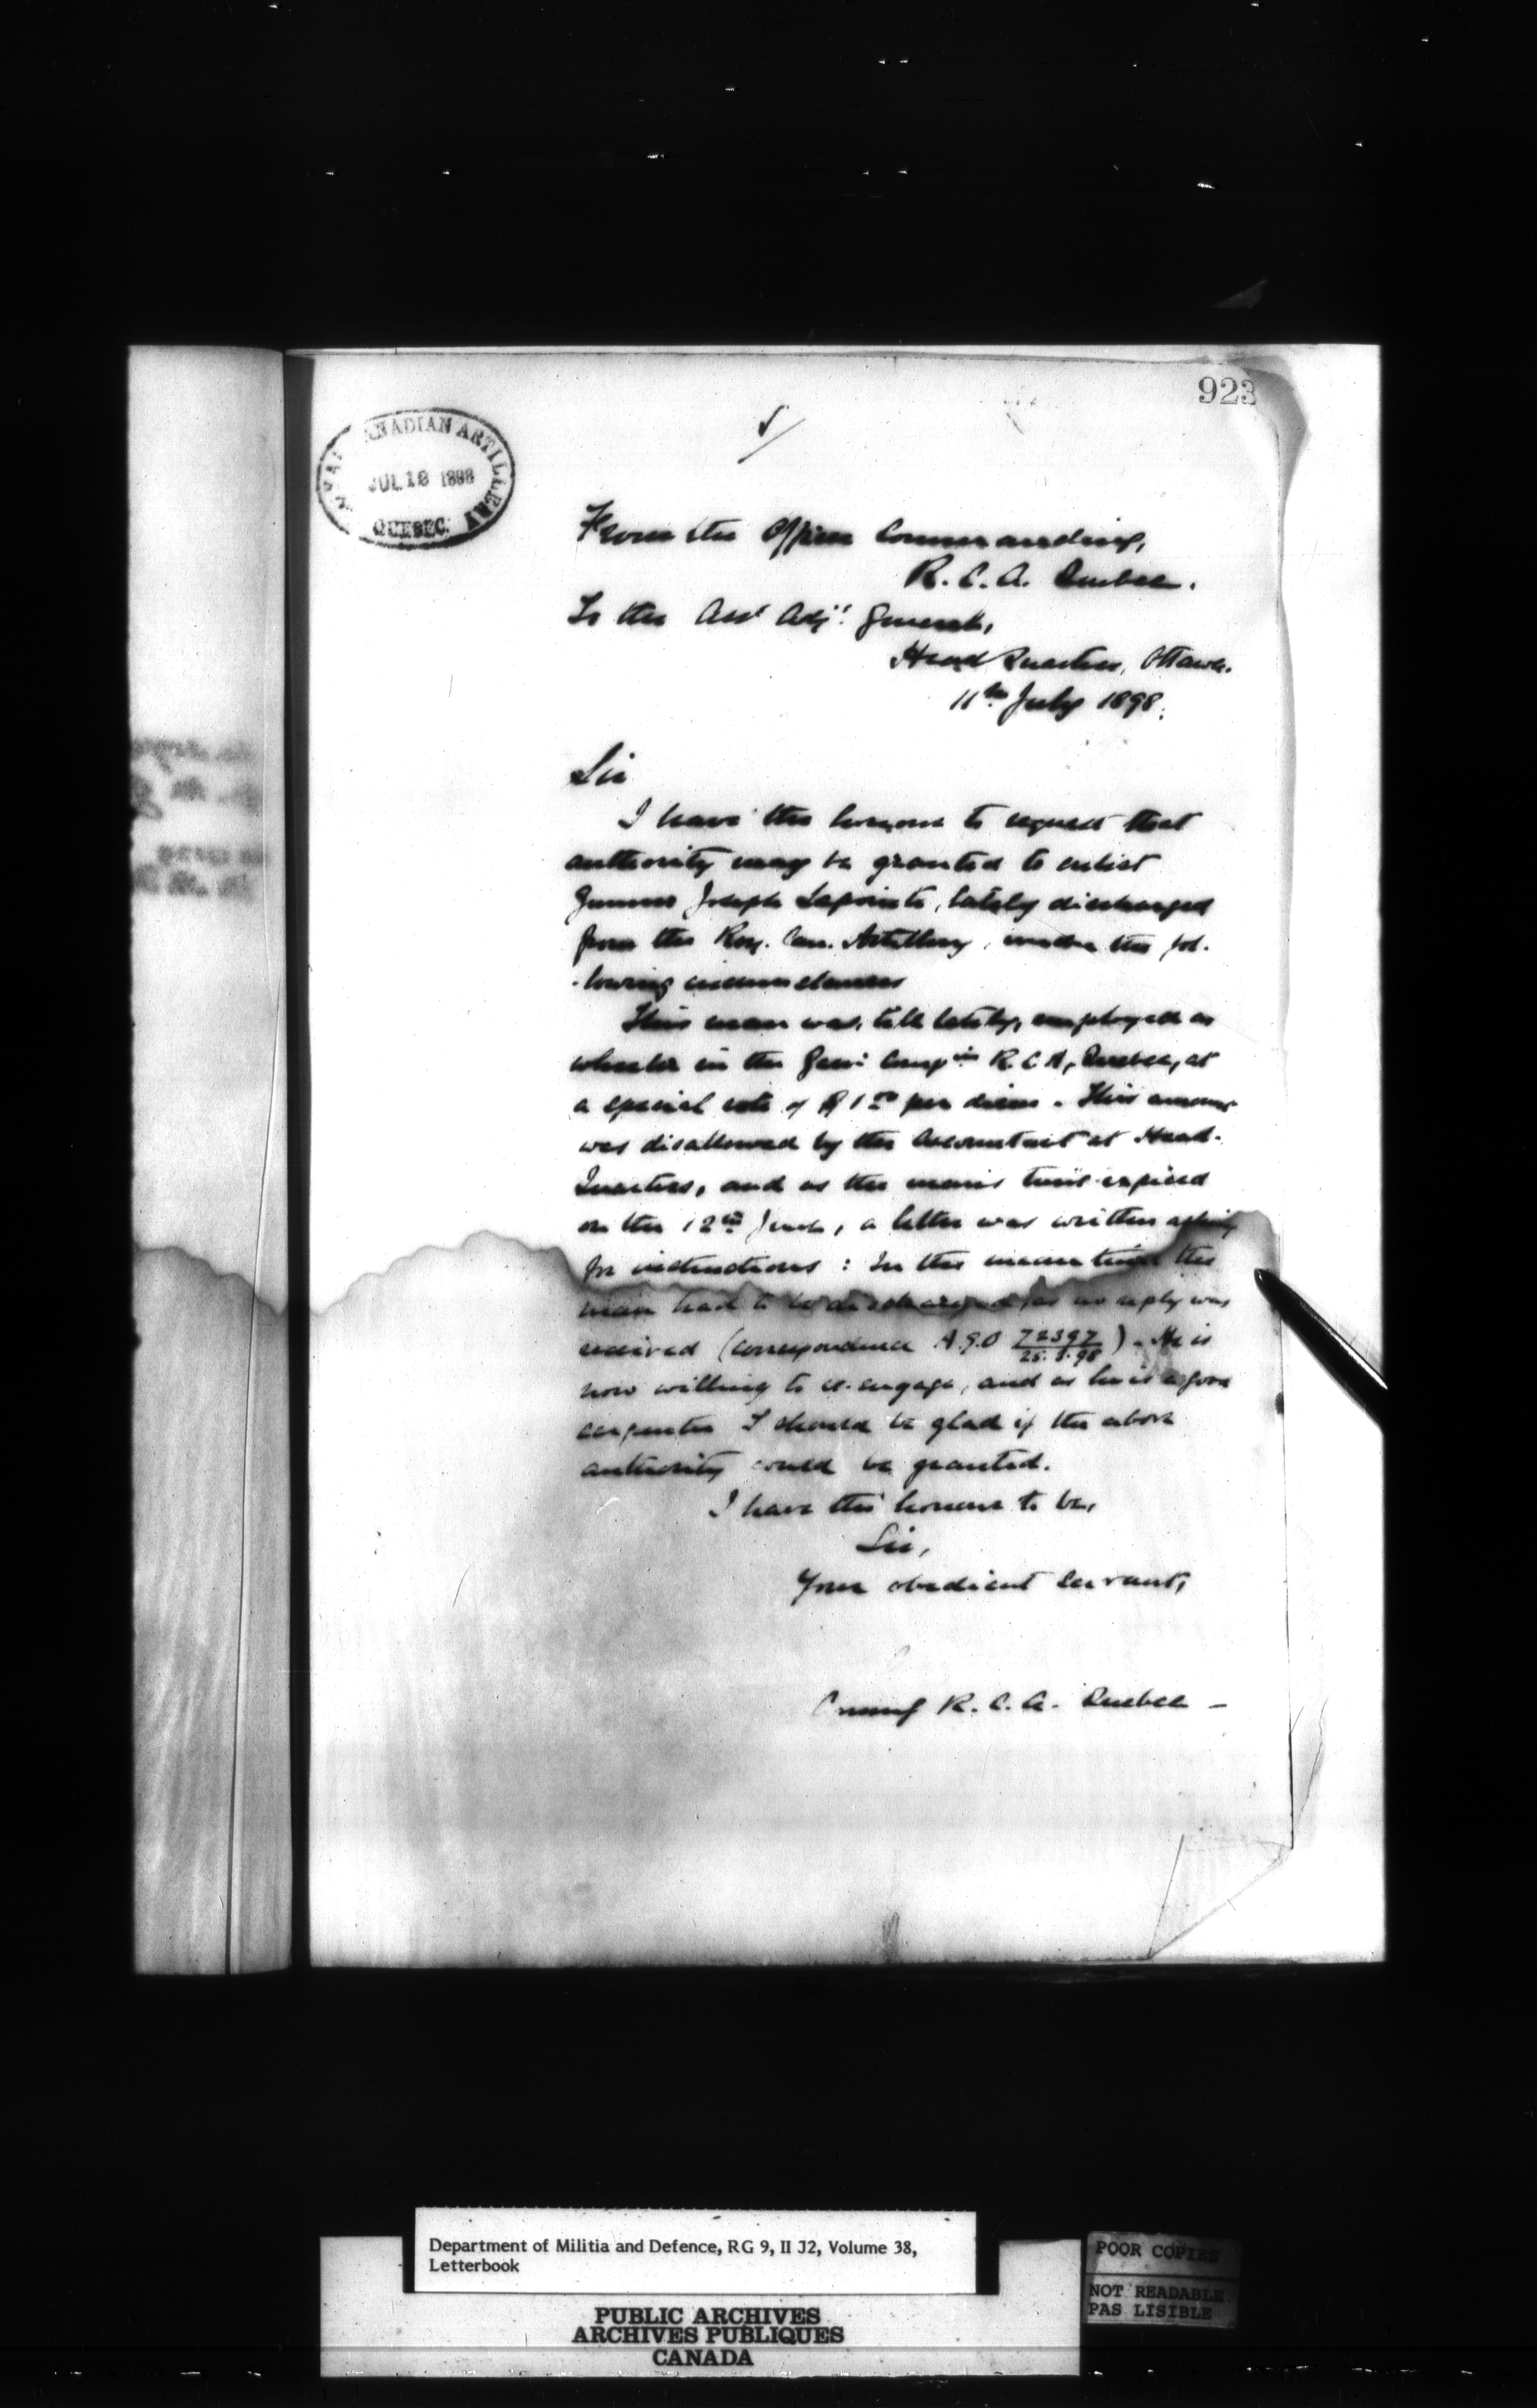 923
ROYAL CANADIAN ARTILLERY
JUL 18 1898
QUEBEC.
From the Officer Commanding,
R. C. A. Quebec.
To the Asst Adjt. General,
Head Quarters, Ottawa.
11th July 1898.
Sir
I have the honour to request that
authority may be granted to enlist
Gunner Joseph Lapointe, lately discharged
from the Roy. Can. Artillery, under the fol-
-lowing circumstances
This man was, till lately, employed as
wheeler in the Comp in R.C.A, Quebec, at
a special rate of $1.00 per diem. This amount
was disallowed by the Accountant at Head-
Quarters, and as the man's time expired
on the 12th June, a letter was written asking
for instructions: In the mean time the
man had to be discharged as no reply was
received (correspondence A.G.O 72397/25.3.98). He is
now willing to re-engage, and as he is a good
carpenter I should be glad if the above
authority could be granted.
I have the honour to be,
Sir,
Your obedient servant,
Commg R. C. A. Quebec -
Department of Militia and Defence, RG 9, II J2, Volume 38,
Letterbook
PUBLIC ARCHIVES
ARCHIVES PUBLIQUES
CANADA
POOR COPIES
NOT READABLE
PAS LISIBLE